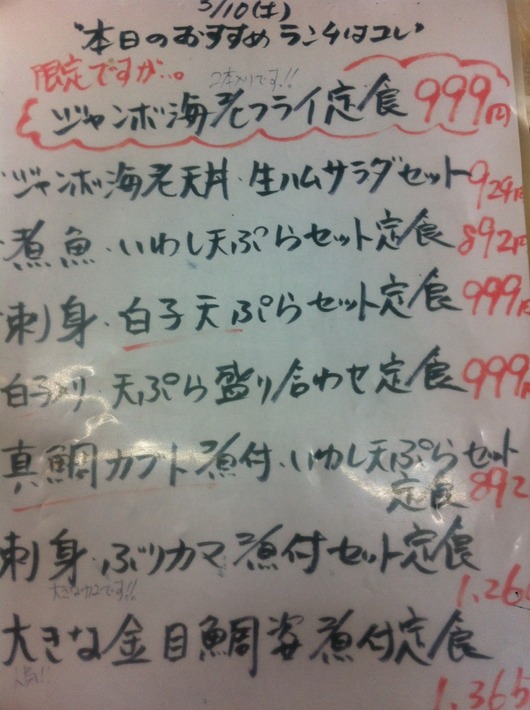 5/10(土)
"本日のおすすめランチはコレ"
限定ですが。。
2本入りです!!
ジャンボ海老フライ定食 999円
・ジャンボ海老天丼・生ハムサラダセット 924円
・煮魚・いわし天ぷらセット定食 892円
刺身・白子天ぷらセット定食 999円
白子入り・天ぷら盛り合わせ定食 999円
真鯛カブト煮付・いわし天ぷらセット
定食 892
刺身・ぶりカマ煮付セット定食
大きなカマです!!
1,26
大きな金目鯛姿煮付定食
人気!!
1,365